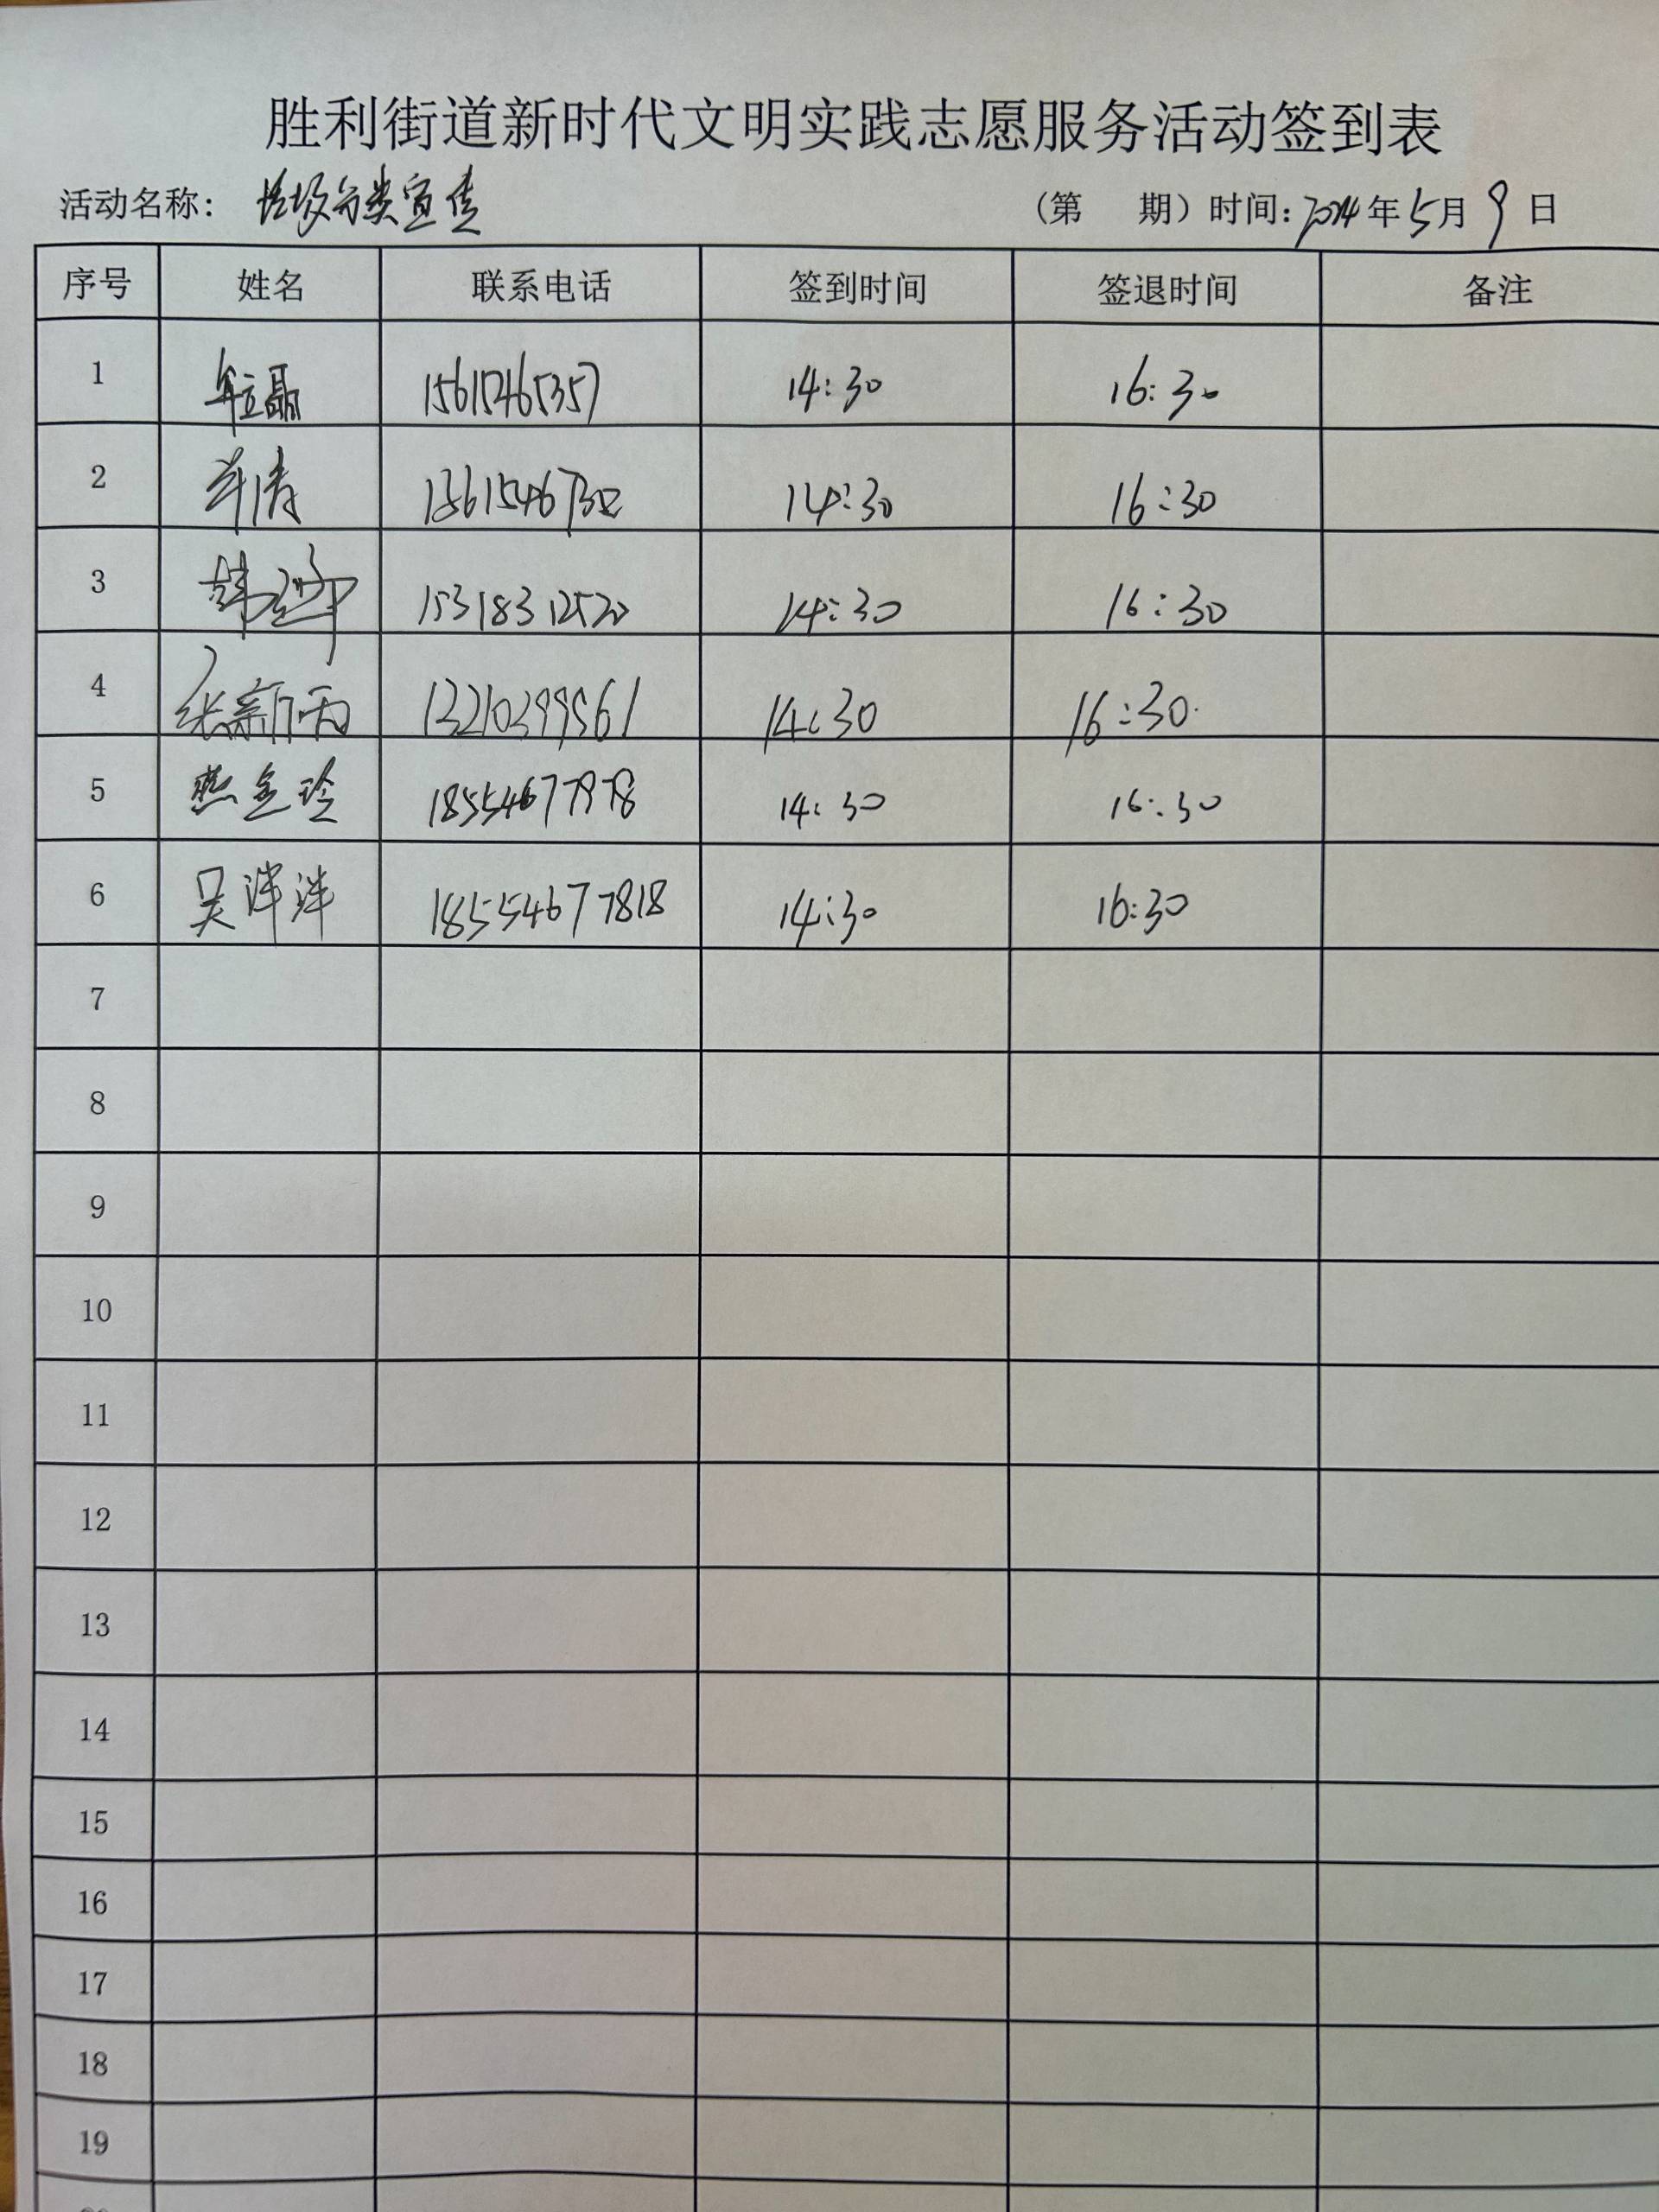 胜利街道新时代文明实践志愿服务活动签到表
活动名称：垃圾分类宣传 （第 期）时间：2024年5月9日
序号 姓名 联系电话 签到时间 签退时间 备注
1 15615465357 14:30 16:30
2 14:30 16:30
3 15318312520 14:30 16:30
4 张新雨 13210399561 14:30 16:30
5 燕金玲 18554677978 14:30 16:30
6 吴洋洋 18554677818 14:30 16:30
7
8
9
10
11
12
13
14
15
16
17
18
19